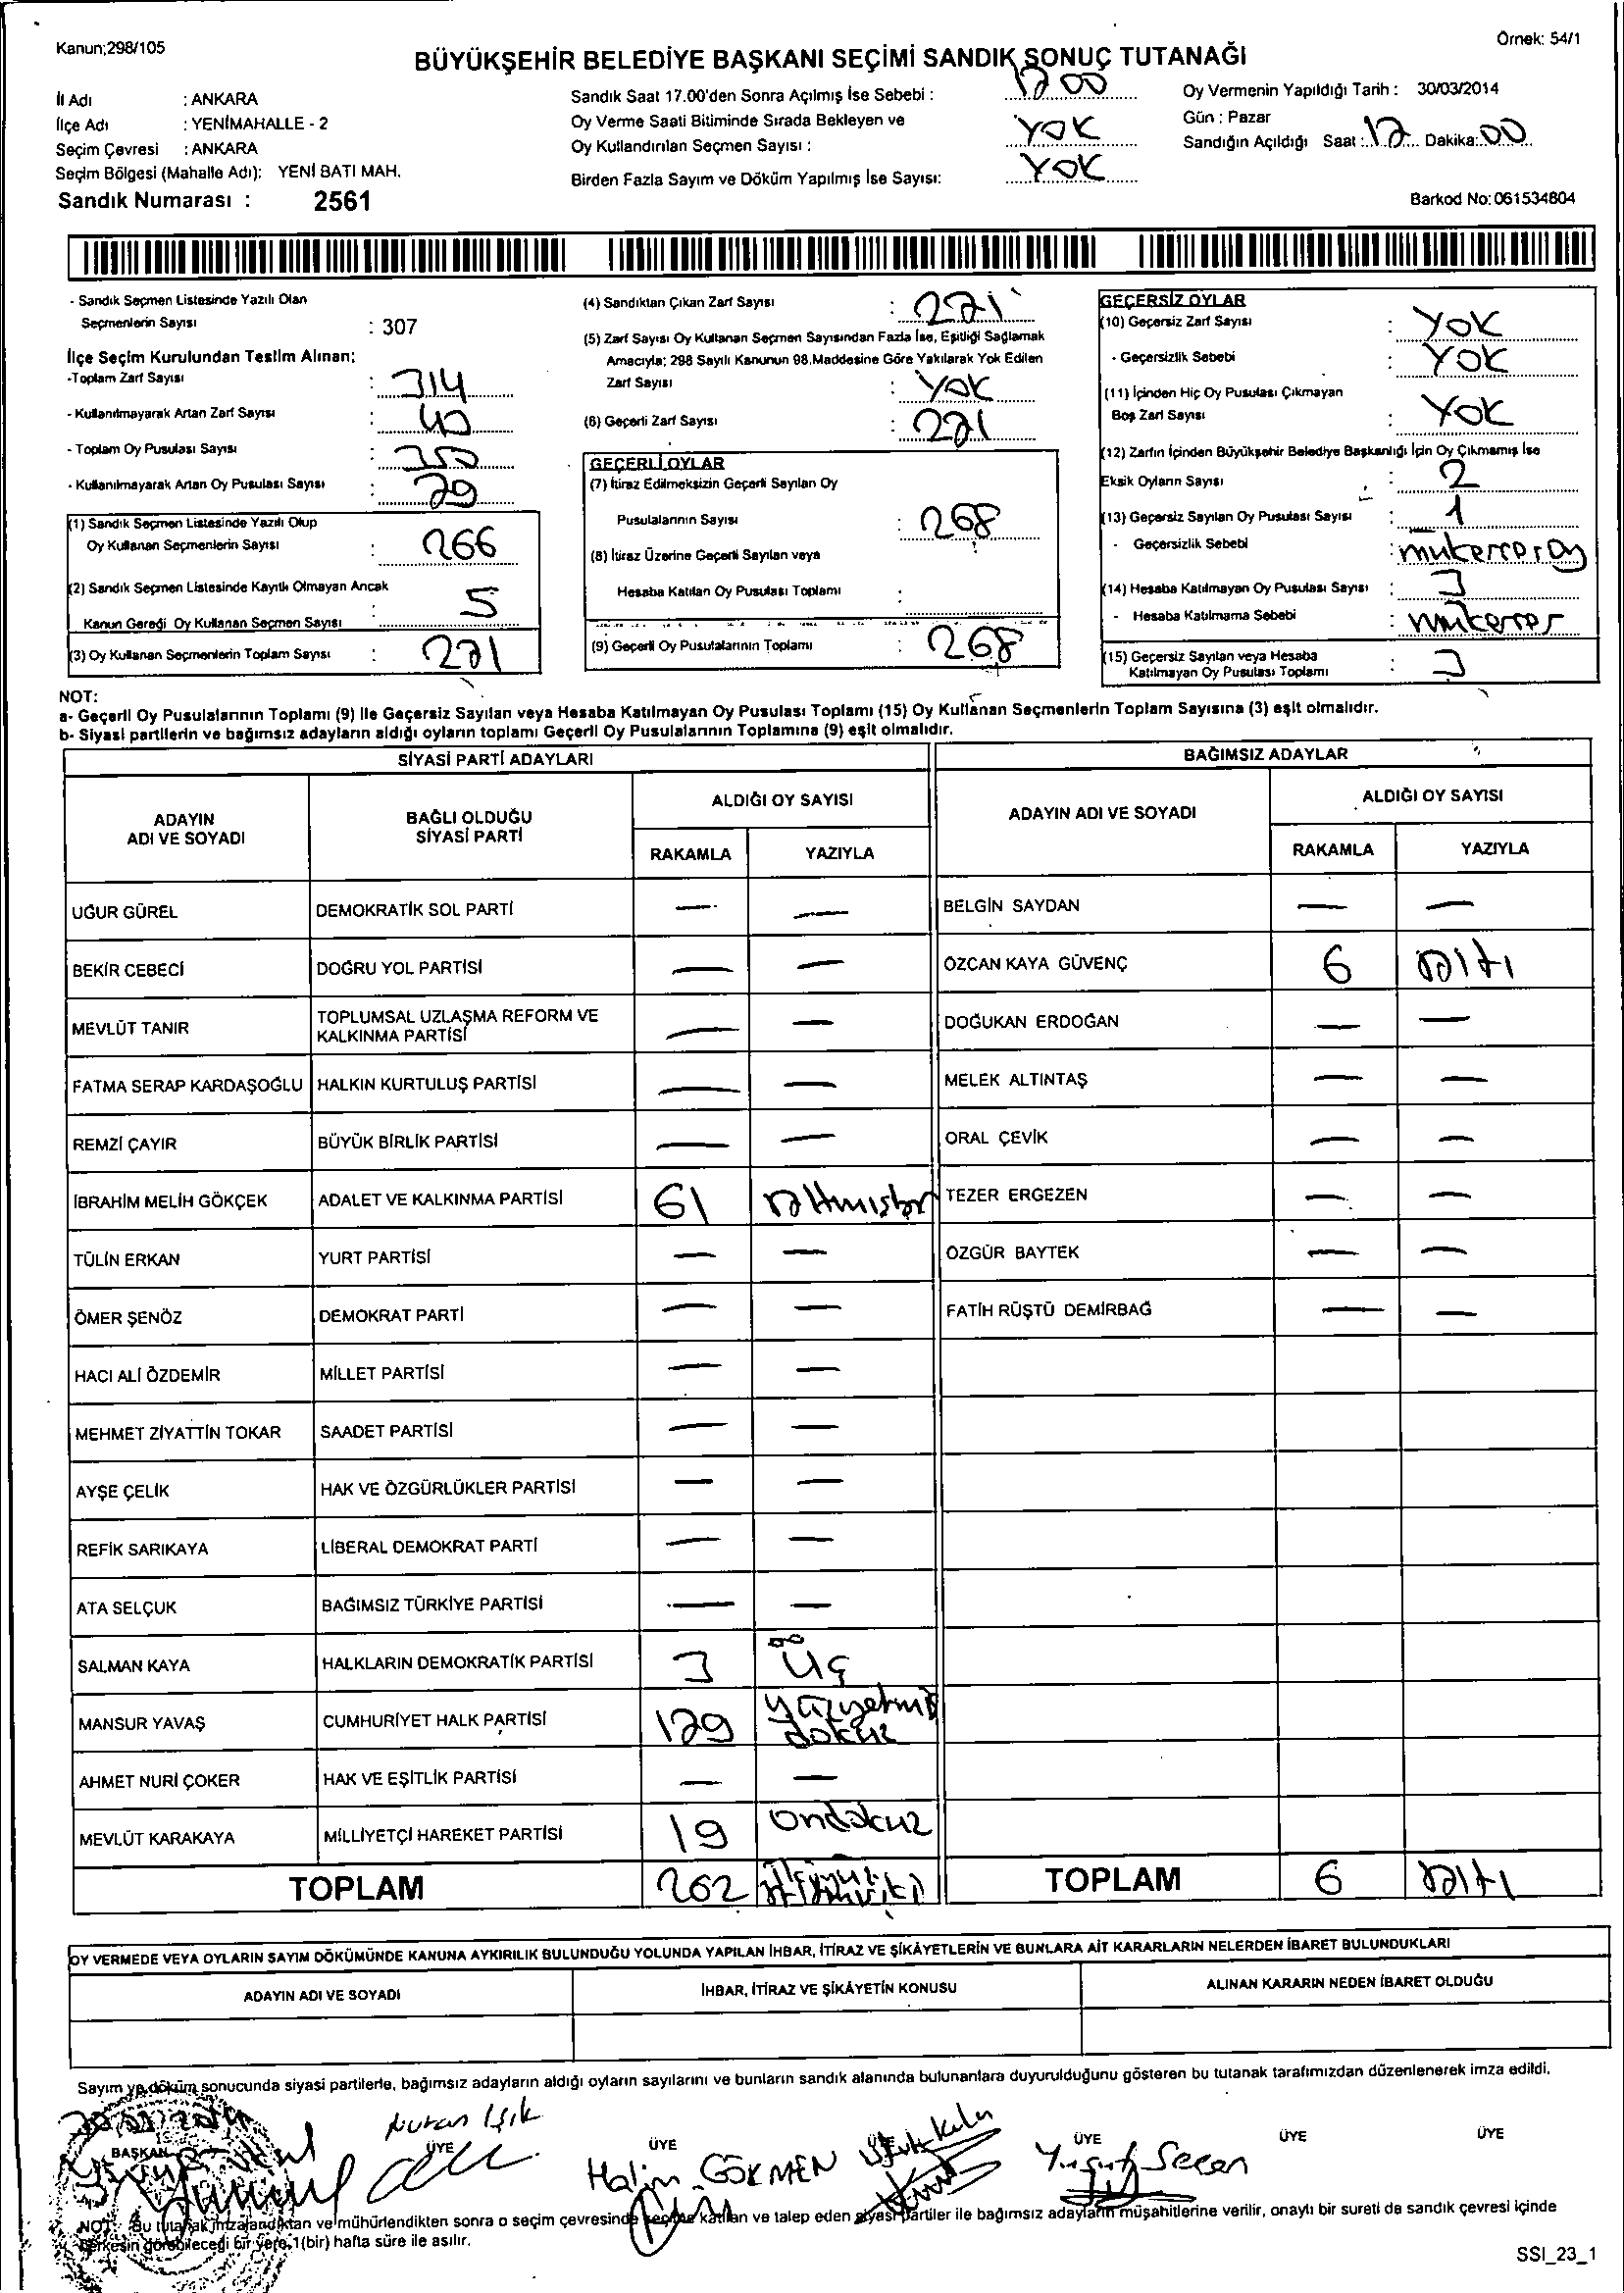 Kanun;298/105
Örnek: 54/1
BÜYÜKŞEHİR BELEDİYE BAŞKANI SEÇİMİ SANDIK SONUÇ TUTANAĞI
İl Adı : ANKARA
İlçe Adı : YENİMAHALLE - 2
Seçim Çevresi : ANKARA
Seçim Bölgesi (Mahalle Adı): YENİ BATI MAH.
Sandık Numarası : 2561
Sandık Saat 17.00'den Sonra Açılmış İse Sebebi : 1700
Oy Verme Saati Bitiminde Sırada Bekleyen ve
Oy Kullandırılan Seçmen Sayısı : YOK
Birden Fazla Sayım ve Döküm Yapılmış İse Sayısı: YOK
Oy Vermenin Yapıldığı Tarih : 30/03/2014
Gün : Pazar
Sandığın Açıldığı Saat : 17 Dakika: 00
Barkod No: 061534804
- Sandık Seçmen Listesinde Yazılı Olan
Seçmenlerin Sayısı : 307
İlçe Seçim Kurulundan Teslim Alınan:
-Toplam Zarf Sayısı : 314
- Kullanılmayarak Artan Zarf Sayısı :
- Toplam Oy Pusulası Sayısı : 350
- Kullanılmayarak Artan Oy Pusulası Sayısı : 79
(1) Sandık Seçmen Listesinde Yazılı Olup
Oy Kullanan Seçmenlerin Sayısı : 266
(2) Sandık Seçmen Listesinde Kayıtlı Olmayan Ancak
Kanun Gereği Oy Kullanan Seçmen Sayısı : 5
(3) Oy Kullanan Seçmenlerin Toplam Sayısı : 271
(4) Sandıktan Çıkan Zarf Sayısı : 271
(5) Zarf Sayısı Oy Kullanan Seçmen Sayısından Fazla İse, Eşitliği Sağlamak
Amacıyla; 298 Sayılı Kanunun 98.Maddesine Göre Yakılarak Yok Edilen
Zarf Sayısı : YOK
(6) Geçerli Zarf Sayısı : 271
GEÇERLİ OYLAR
(7) İtiraz Edilmeksizin Geçerli Sayılan Oy
Pusulalarının Sayısı : 268
(8) İtiraz Üzerine Geçerli Sayılan veya
Hesaba Katılan Oy Pusulası Toplamı :
(9) Geçerli Oy Pusulalarının Toplamı : 268
GEÇERSİZ OYLAR
(10) Geçersiz Zarf Sayısı : YOK
- Geçersizlik Sebebi : YOK
(11) İçinden Hiç Oy Pusulası Çıkmayan
Boş Zarf Sayısı : YOK
(12) Zarfın İçinden Büyükşehir Belediye Başkanlığı İçin Oy Çıkmamış İse
Eksik Oyların Sayısı : 2
(13) Geçersiz Sayılan Oy Pusulası Sayısı : 1
- Geçersizlik Sebebi : mükerrer oy
(14) Hesaba Katılmayan Oy Pusulası Sayısı : 3
- Hesaba Katılmama Sebebi : mükerrer
(15) Geçersiz Sayılan veya Hesaba
Katılmayan Oy Pusulası Toplamı : 3
NOT:
a- Geçerli Oy Pusulalarının Toplamı (9) ile Geçersiz Sayılan veya Hesaba Katılmayan Oy Pusulası Toplamı (15) Oy Kullanan Seçmenlerin Toplam Sayısına (3) eşit olmalıdır.
b- Siyasi partilerin ve bağımsız adayların aldığı oyların toplamı Geçerli Oy Pusulalarının Toplamına (9) eşit olmalıdır.
SİYASİ PARTİ ADAYLARI
ADAYIN ADI VE SOYADI
BAĞLI OLDUĞU SİYASİ PARTİ
ALDIĞI OY SAYISI
RAKAMLA YAZIYLA
UĞUR GÜREL DEMOKRATİK SOL PARTİ — —
BEKİR CEBECİ DOĞRU YOL PARTİSİ — —
MEVLÜT TANIR TOPLUMSAL UZLAŞMA REFORM VE KALKINMA PARTİSİ — —
FATMA SERAP KARDAŞOĞLU HALKIN KURTULUŞ PARTİSİ — —
REMZİ ÇAYIR BÜYÜK BİRLİK PARTİSİ — —
İBRAHİM MELİH GÖKÇEK ADALET VE KALKINMA PARTİSİ 61 altmışbir
TÜLİN ERKAN YURT PARTİSİ — —
ÖMER ŞENÖZ DEMOKRAT PARTİ — —
HACI ALİ ÖZDEMİR MİLLET PARTİSİ — —
MEHMET ZİYATTİN TOKAR SAADET PARTİSİ — —
AYŞE ÇELİK HAK VE ÖZGÜRLÜKLER PARTİSİ — —
REFİK SARIKAYA LİBERAL DEMOKRAT PARTİ — —
ATA SELÇUK BAĞIMSIZ TÜRKİYE PARTİSİ — —
SALMAN KAYA HALKLARIN DEMOKRATİK PARTİSİ 3 üç
MANSUR YAVAŞ CUMHURİYET HALK PARTİSİ 179 yüzyetmiş dokuz
AHMET NURİ ÇOKER HAK VE EŞİTLİK PARTİSİ — —
MEVLÜT KARAKAYA MİLLİYETÇİ HAREKET PARTİSİ 19 ondokuz
TOPLAM 262
BAĞIMSIZ ADAYLAR
ADAYIN ADI VE SOYADI
ALDIĞI OY SAYISI
RAKAMLA YAZIYLA
BELGİN SAYDAN — —
ÖZCAN KAYA GÜVENÇ 6 altı
DOĞUKAN ERDOĞAN — —
MELEK ALTINTAŞ — —
ORAL ÇEVİK — —
TEZER ERGEZEN — —
ÖZGÜR BAYTEK — —
FATİH RÜŞTÜ DEMİRBAĞ — —
TOPLAM 6 altı
OY VERMEDE VEYA OYLARIN SAYIM DÖKÜMÜNDE KANUNA AYKIRILIK BULUNDUĞU YOLUNDA YAPILAN İHBAR, İTİRAZ VE ŞİKÂYETLERİN VE BUNLARA AİT KARARLARIN NELERDEN İBARET BULUNDUKLARI
ADAYIN ADI VE SOYADI İHBAR, İTİRAZ VE ŞİKÂYETİN KONUSU ALINAN KARARIN NEDEN İBARET OLDUĞU
Sayım ve döküm sonucunda siyasi partilerle, bağımsız adayların aldığı oyların sayılarını ve bunların sandık alanında bulunanlara duyurulduğunu gösteren bu tutanak tarafımızdan düzenlenerek imza edildi.
BAŞKAN ÜYE ÜYE ÜYE ÜYE ÜYE ÜYE
Nuran Işık
Halim GÖKMEN
Yusuf Seçen
NOT: Bu tutanak imzalandıktan ve mühürlendikten sonra o seçim çevresinde seçime katılan ve talep eden siyasi partiler ile bağımsız adayların müşahitlerine verilir, onaylı bir sureti de sandık çevresi içinde
herkesin görebileceği bir yere, 1(bir) hafta süre ile asılır.
SSI_23_1